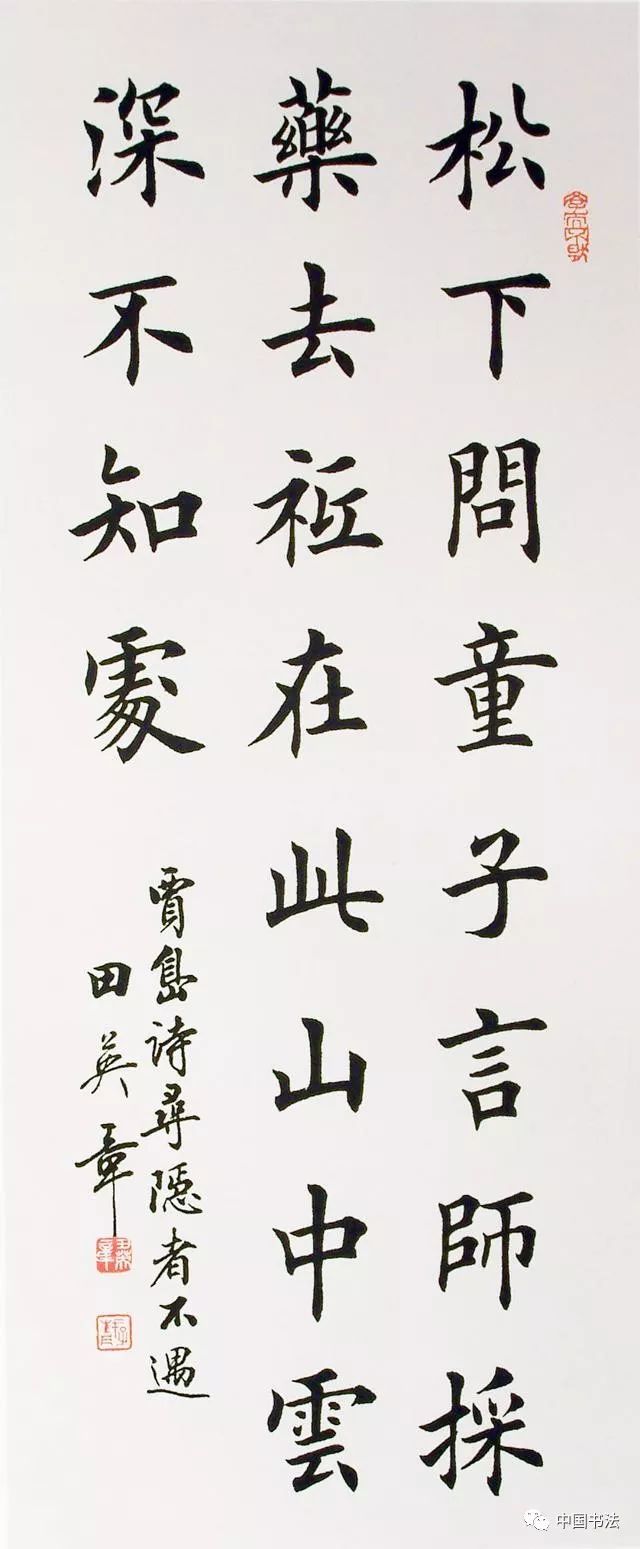 松下問童子言師採
藥去祗在此山中雲
深不知處
賈島诗尋隱者不遇
田英章
中国书法